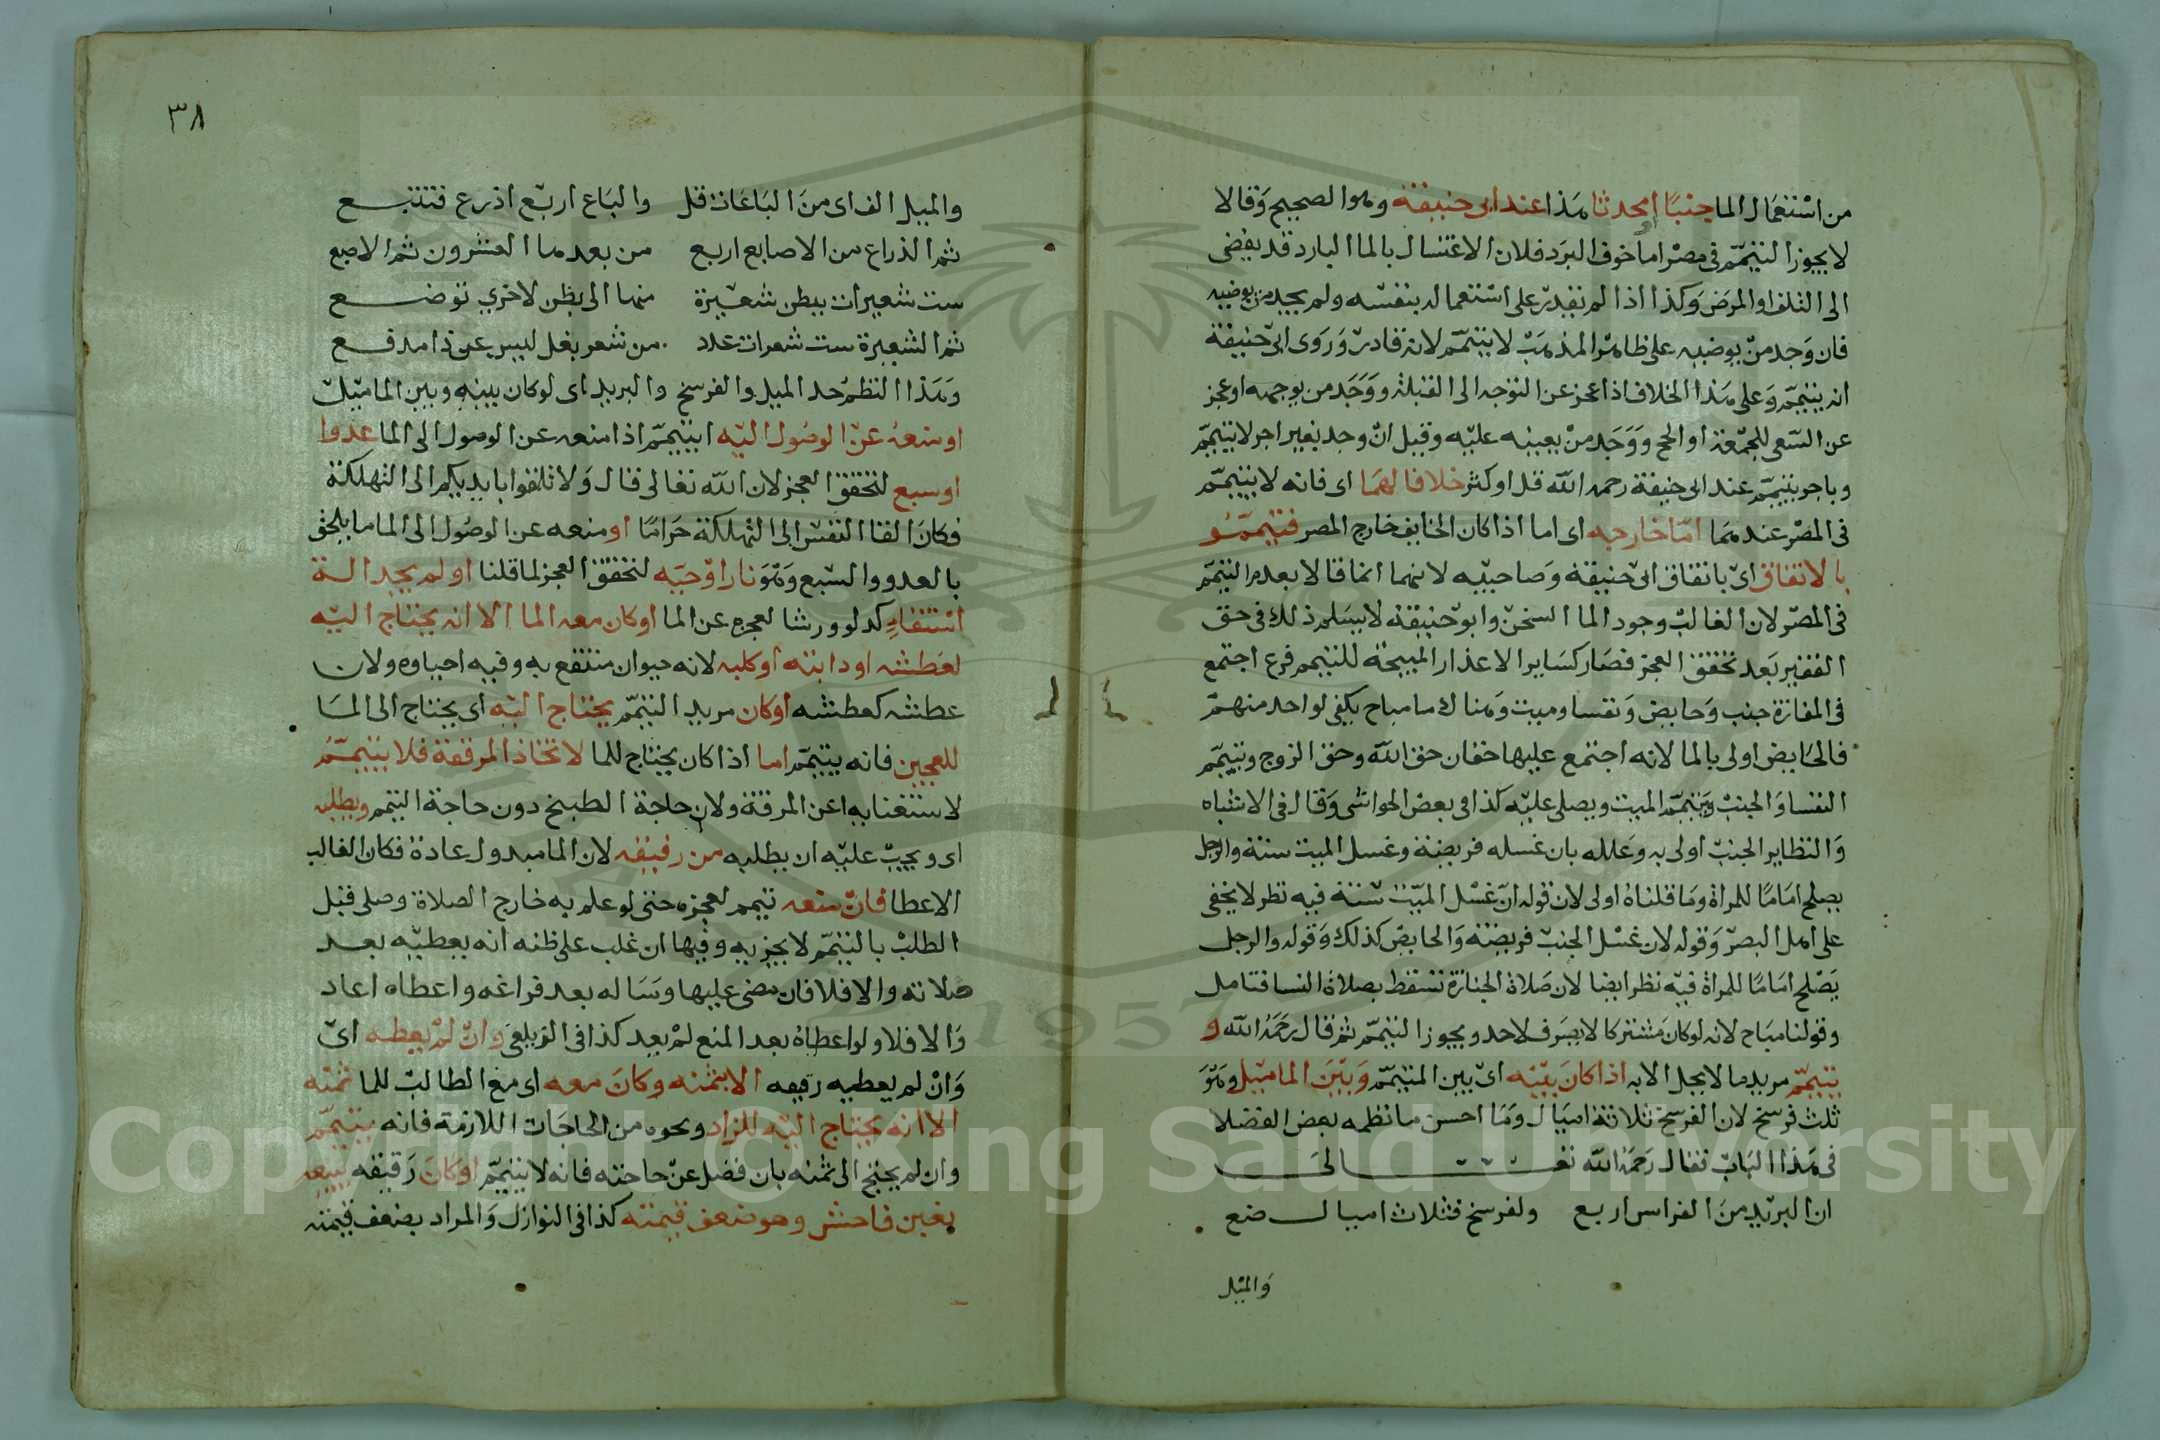 من استعمال الما جنبا او محدثا هذا عند ابى حنيفة وهو الصحيح وقالا
لا يجوز التيمم فى مصر اما خوف البرد فلان الاغتسال بالما البارد قد يفضى
الى التلف او المرض وكذا اذا لم يقدر على استعماله بنفسه ولم يجد من يوضيه
فان وجد من يوضيه على ظاهر المذهب لا يتيمم لانه قادر وروى ابى حنيفة
انه يتيمم وعلى هذا الخلاف اذا عجز عن التوجه الى القبلة ووجد من يوجهه او عجز
عن السعى للجمعة او الحج ووجد من يعينه عليه وقيل ان وجد بغير اجر لا يتيمم
وباجر يتيمم عند ابى حنيفة رحمه الله قل او كثر خلافا لهما اى فانه لا يتيمم
فى المصر عندهما اما خارجه اى اما اذا كان الخايف خارج المصر فتيممه
بالاتفاق اى باتفاق ابى حنيفة وصاحبيه لانهما انما قالا بعدم التيمم
فى المصر لان الغالب وجود الما السخن وابو حنيفة لا يسلم ذلك فى حق
الفقير بعد تحقق العجز فصار كساير الاعذار المبيحة للتيمم فرع اجتمع
فى المفازة جنب وحايض ونفسا وميت وهناك ما مباح يكفى لواحد منهم
فالحايض اولى بالما لانه اجتمع عليها حقان حق الله وحق الزوج وتيمم
النفسا والجنب وييمم الميت ويصلى عليه كذا فى بعض الحواشى وقال فى الاشباه
والنظاير الجنب اولى به وعلله بان غسله فريضة وغسل الميت سنة والرجل
يصلح اماما للمراة وما قلناه اولى لان قوله ان غسل الميت سنة فيه نظر لا يخفى
على اهل البصر وقوله لان غسل الجنب فريضة والحايض كذلك وقوله والرجل
يصلح اماما للمراة فيه نظر ايضا لان صلاة الجنازة تسقط بصلاة النسا فتامل
وقولنا مباح لانه لو كان مشتركا لا يصرف لاحد ويجوز التيمم ثم قال رحمه الله و
يتيمم مريد ما لا يحل الا به اذا كان بينه اى بين المتيمم وبين الما ميل وهو
ثلث فرسخ لان الفرسخ ثلاثة اميال وما احسن ما نظمه بعض الفضلا
فى هذا الباب فقال رحمه الله تعالى
ان البريد من الفراس اربع ولفرسخ فثلاث اميال ضع
والميل
٣٨
والميل الف اى من الباعات قل والباع اربع اذرع فتتبع
ثم الذراع من الاصابع اربع من بعدها العشرون ثم الاصبع
ست شعيرات ببطن شعيرة منها الى بطن لاخرى توضع
ثم الشعيرة ست شعرات عدد من شعر بغل ليس عن ذا مدفع
وهذا النظم حد الميل والفرسخ والبريد اى لو كان بينه وبين الما ميل
او منعه عن الوصول اليه ايتيمم اذا منعه عن الوصول الى الما عدوا
او سبع لتحقق العجز لان الله تعالى قال ولا تلقوا بايديكم الى التهلكة
فكان القا النفس الى التهلكة حراما او منعه عن الوصول الى الما ما يلحق
بالعدو والسبع وهو نارا وحيه لتحقق العجز لما قلنا او لم يجد الة
استقاء كدلو ورشا لعجزه عن الما او كان معه الما الا انه يحتاج اليه
لعطشه او دابته او كلبه لانه حيوان منتفع به وفيه احياوه ولان
عطشه كعطشه او كان مريد التيمم يحتاج اليه اى يحتاج الى الما
للعجين فانه يتيمم اما اذا كان يحتاج للما لاتخاذ المرقة فلا يتيمم
لاستغنايه عن المرقة ولان حاجة الطبخ دون حاجة التيمم ويطلبه
اى ويجب عليه ان يطلبه من رفيقه لان الما مبذول عادة فكان الغالب
الاعطا فان منعه تيمم لعجزه حتى لو علم به خارج الصلاة وصلى قبل
الطلب بالتيمم لا يجزيه وفيها ان غلب على ظنه انه يعطيه بعد
صلاته والا فلا فان مضى عليها وساله بعد فراغه واعطاه اعاد
والا فلا ولو اعطاه بعد المنع لم يعد كذا فى الزيلعى وان لم يعطه اى
وان لم يعطيه رفيقه الا بثمنه وكان معه اى مع الطالب للما ثمنه
الا انه يحتاج اليه للزاد ونحوه من الحاجات اللازمة فانه يتيمم
وان لم يحتج الى ثمنه بان فضل عن حاجته فانه لا يتيمم او كان رفيقه يبيعه
بغبن فاحش وهو ضعف قيمته كذا فى النوازل والمراد بضعف قيمته
Copyright © King Saud University
1957